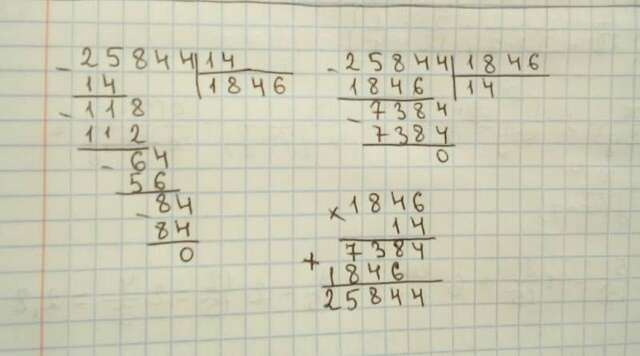 - 25844 | 14
14 | 1846
- 118
112
- 64
56
- 84
84
0
- 25844 | 1846
1846 | 14
- 7384
7384
0
× 1846
14
7384
+ 1846
25844